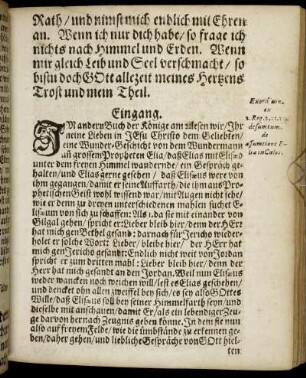 Rath / und nimst mich endlich mit Ehren
an. Wenn ich nur dich habe / so frage ich
nichts nach Himmel und Erden. Wenn
mir gleich Leib und Seel verschmacht / so
bistu doch GOtt allezeit meines Hertzens
Trost und mein Theil.
Eingang.
IM andern Buch der Könige am 2. lesen wir / Ihr
meine Lieben in JEsu Christo dem Geliebten /
eine Wunder-Geschicht von dem Wundermann
und grossem Propheten Elia / daß Elias mit Elisa
unter dem freyen Himmel wandernde / ein Gespräch ge-
halten / und Elias gerne gesehen / daß Eliseus were von
ihm gegangen / damit er seine Auffarth / die ihm aus Pro-
phetischem Geist wohl wissend war / mit Augen nicht sehe /
wie er denn zu dreyen unterschiedenen mahlen suchet E-
liseum von sich zu schaffen: Als 1. da sie mit einander von
Gilgal gehen / spricht er: Lieber bleib hier / denn der HErr
hat mich gen Bethel gesand: darnach für Jericho wieder-
holet er solche Wort: Lieber / bleibe hier / der HErr hat
mich gen Jericho gesandt: Endlich nicht weit von Jordan
spricht er zum dritten mahl: Lieber bleib hier / denn der
HErr hat mich gesandt an den Jordan. Weil nun Elisæus
weder wancken noch weichen will / lest es Elias geschehen /
und dencket ohn allen zweiffel bey sich / es sey also GOttes
Wille / daß Elisæus soll bey seiner Himmelfarth seyn / und
dieselbe mit anschauen / damit Er / als ein lebendiger Zeu-
ge darvon hernach Zeugnis geben könne. In dem sie nun
also auf freyem Felde / wie die umbstände zu erkennen ge-
ben / daher gehen / und liebliche Gespräche von GOtt hiel-
ten:
Exordium,
ex
desumtum,
de
assumtione E-
liæ in Cœlos.